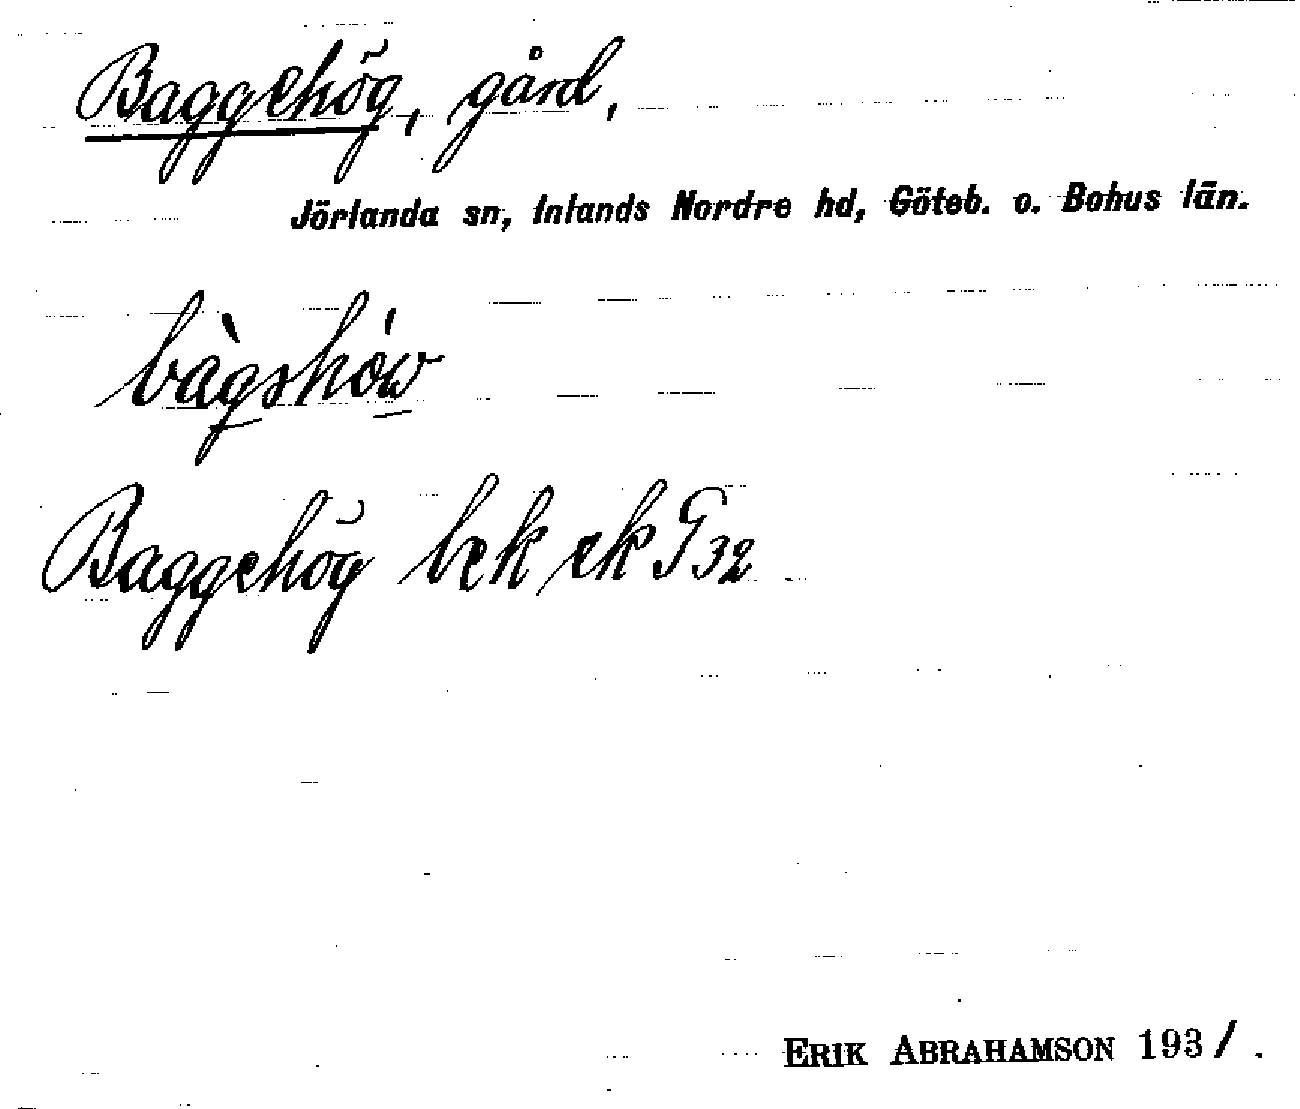 Baggehög, gård,
Jörlanda sn, Inlands Nordre hd, Göteb. o. Bohus län.
bàgshów
Baggehög bek ek G 32
ERIK ABRAHAMSON 193/.